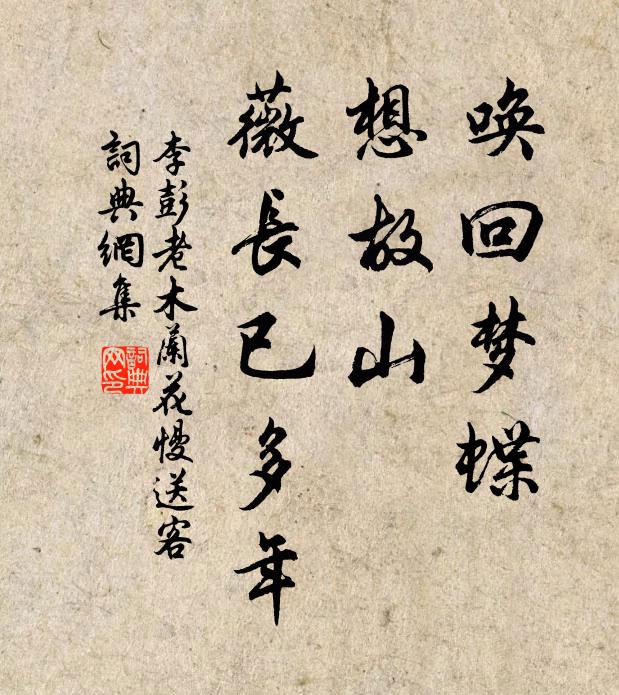 唤回梦蝶
想故山
薇長已多年
李彭老木蘭花慢送客
詞典網集
詞典网印